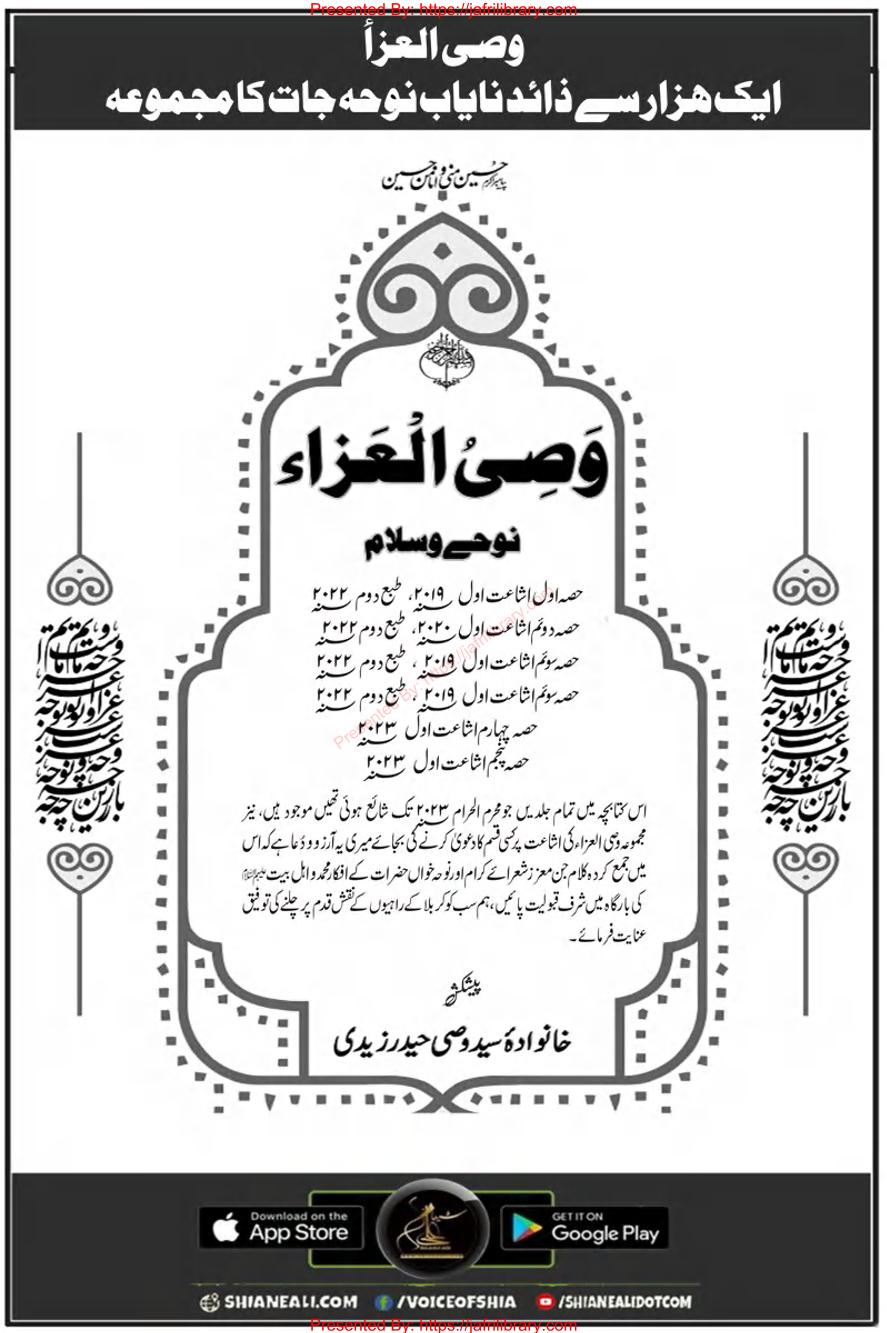 Presented By: https://jafrilibrary.com
وصی العزأ
ایک ہزار سے ذائد نایاب نوحہ جات کا مجموعہ
حسین منی و انا من حسین
پیامبر اکرم
وَصِیُ الْعَزاء
نوحے و سلام
حصہ اول اشاعت اول ۲۰۱۹؁، طبع دوم ۲۰۲۲؁
حصہ دوئم اشاعت اول ۲۰۲۰؁، طبع دوم ۲۰۲۲؁
حصہ سوئم اشاعت اول ۲۰۱۹؁، طبع دوم ۲۰۲۲؁
حصہ سوئم اشاعت اول ۲۰۱۹؁، طبع دوم ۲۰۲۲؁
حصہ چہارم اشاعت اول ۲۰۲۳؁
حصہ پنجم اشاعت اول ۲۰۲۳؁
Presented By: https://jafrilibrary.com
اس کتابچہ میں تمام جلدیں جو محرم الحرام ۲۰۲۳؁ تک شائع ہوئی تھیں موجود ہیں، نیز
مجموعہ وصی العزاء کی اشاعت پر کسی قسم کا دعویٰ کرنے کی بجائے میری یہ آرزو و دُعا ہے کہ اس
میں جمع کردہ کلام جن معزز شعرائے کرام اور نوحہ خواں حضرات کے افکار محمد و اہل بیت علیہم السلام
کی بارگاہ میں شرف قبولیت پائیں، ہم سب کو کربلا کے راہیوں کے نقش قدم پر چلنے کی توفیق
عنایت فرمائے۔
پیشکش
خانوادۂ سید وصی حیدر زیدی
Download on the
App Store
GET IT ON
Google Play
SHIANEALI.COM
/VOICEOFSHIA
/SHIANEALIDOTCOM
Presented By: https://jafrilibrary.com